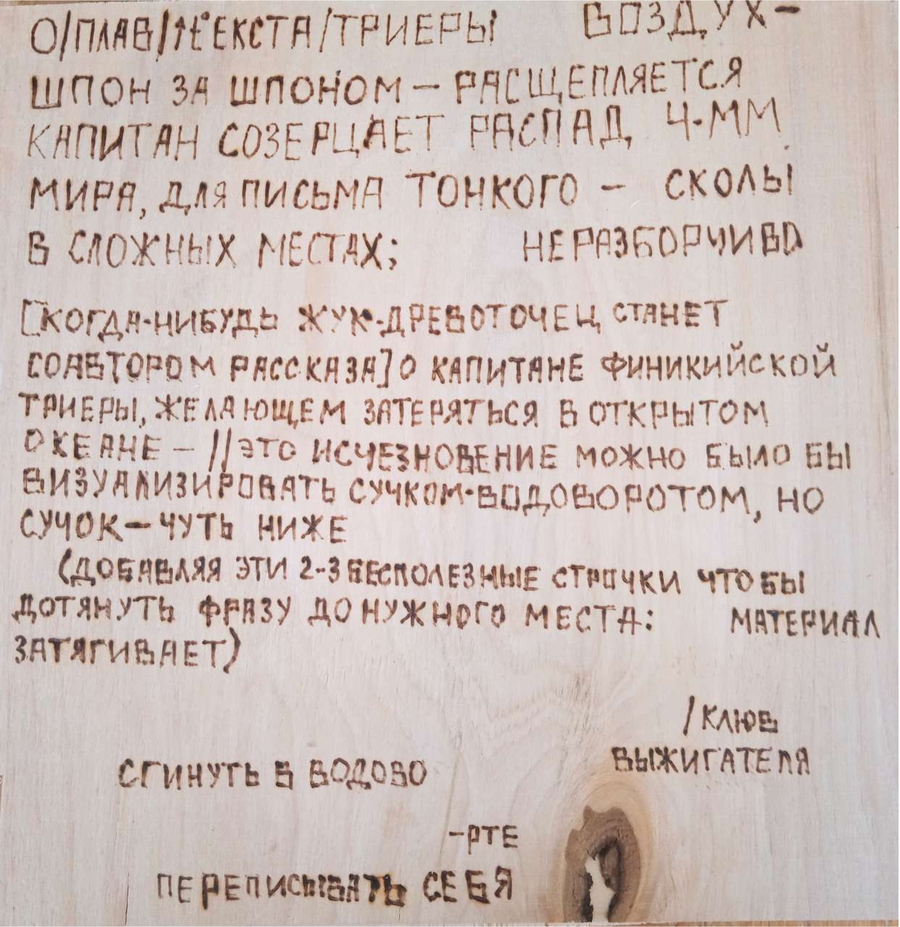 О/ПЛАВ/ТЕКСТА/ТРИЕРЫ ВОЗДУХ-
ШПОН ЗА ШПОНОМ — РАСЩЕПЛЯЕТСЯ
КАПИТАН СОЗЕРЦАЕТ РАСПАД 4-ММ
МИРА, ДЛЯ ПИСЬМА ТОНКОГО — СКОЛЫ
В СЛОЖНЫХ МЕСТАХ; НЕРАЗБОРЧИВО
[КОГДА-НИБУДЬ ЖУК-ДРЕВОТОЧЕЦ СТАНЕТ
СОАВТОРОМ РАССКАЗА] О КАПИТАНЕ ФИНИКИЙСКОЙ
ТРИЕРЫ, ЖЕЛАЮЩЕМ ЗАТЕРЯТЬСЯ В ОТКРЫТОМ
ОКЕАНЕ — // ЭТО ИСЧЕЗНОВЕНИЕ МОЖНО БЫЛО БЫ
ВИЗУАЛИЗИРОВАТЬ СУЧКОМ-ВОДОВОРОТОМ, НО
СУЧОК — ЧУТЬ НИЖЕ
(ДОБАВЛЯЯ ЭТИ 2-3 БЕСПОЛЕЗНЫЕ СТРОЧКИ ЧТОБЫ
ДОТЯНУТЬ ФРАЗУ ДО НУЖНОГО МЕСТА: МАТЕРИАЛ
ЗАТЯГИВАЕТ)
/КЛЮВ
ВЫЖИГАТЕЛЯ
СГИНУТЬ В ВОДОВО
-РТЕ
ПЕРЕПИСЫВАТЬ СЕБЯ